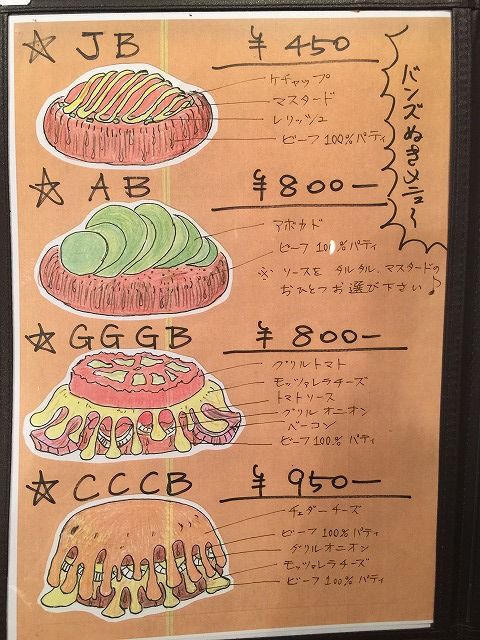 ☆ JB ¥450
ケチャップ
マスタード
レリッシュ
ビーフ100%パティ
バンズぬきメニュー
☆ AB ¥800-
アボカド
ビーフ 100%パティ
※ ソースを タルタル、マスタードの
おひとつお選び下さい♪
☆ GGGB ¥800-
グリルトマト
モッツァレラチーズ
トマトソース
グリル オニオン
ベーコン
ビーフ100%パティ
☆ CCCB ¥950-
チェダーチーズ
ビーフ100%パティ
グリルオニオン
モッツァレラチーズ
ビーフ100%パティ